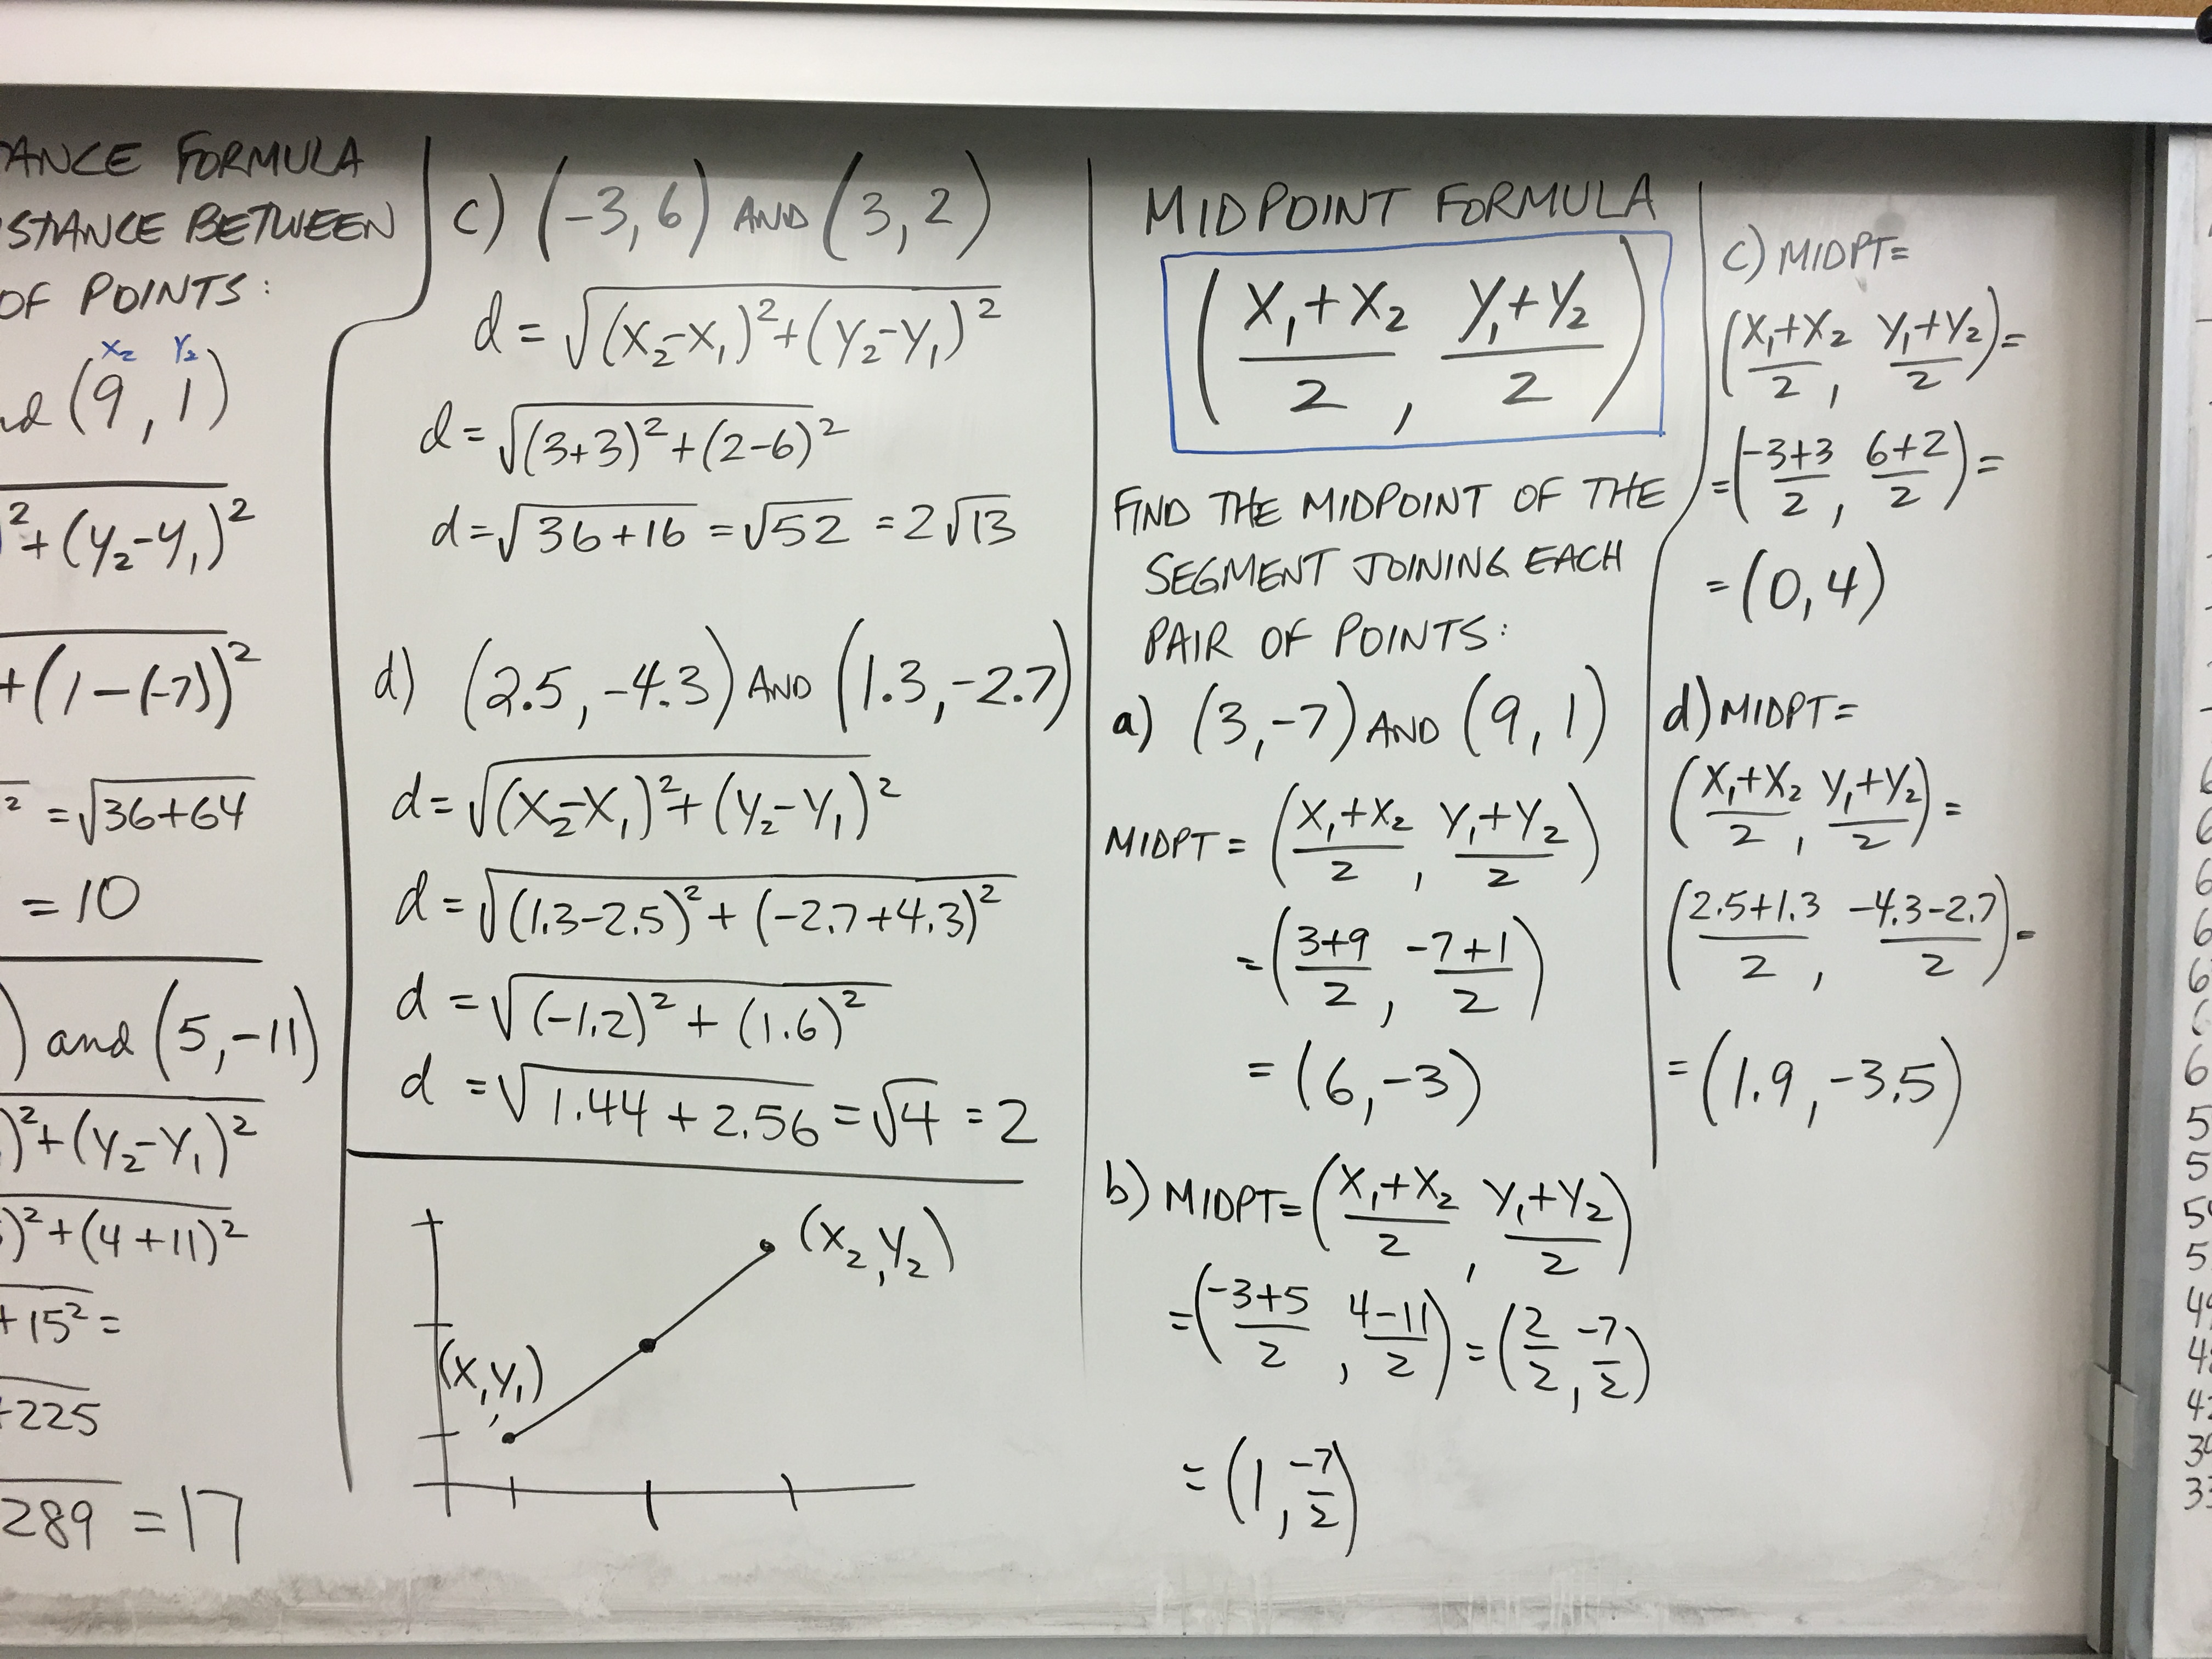 ANCE FORMULA
STANCE BETWEEN
OF POINTS:
x₂ y₂
nd (9, 1)
² + (y₂-y₁)²
+ (1-(-7))²
² = √36+64
= 10
) and (5, -11)
)² + (y₂-y₁)²
)² + (4+11)²
+ 15² =
+225
289 = 17
c) (-3, 6) AND (3, 2)
d = √(x₂-x₁)² + (y₂-y₁)²
d = √(3+3)² + (2-6)²
d = √36+16 = √52 = 2√13
d) (2.5, -4.3) AND (1.3, -2.7)
d = √(x₂-x₁)² + (y₂-y₁)²
d = √(1.3-2.5)² + (-2.7+4.3)²
d = √(-1.2)² + (1.6)²
d = √1.44 + 2.56 = √4 = 2
(x₂, y₂)
(x, y₁)
MIDPOINT FORMULA
((x₁+x₂)/2, (y₁+y₂)/2)
FIND THE MIDPOINT OF THE
SEGMENT JOINING EACH
PAIR OF POINTS:
a) (3, -7) AND (9, 1)
MIDPT = ((x₁+x₂)/2, (y₁+y₂)/2)
= ((3+9)/2, (-7+1)/2)
= (6, -3)
b) MIDPT = ((x₁+x₂)/2, (y₁+y₂)/2)
= ((-3+5)/2, (4-11)/2) = (2/2, -7/2)
= (1, -7/2)
c) MIDPT =
((x₁+x₂)/2, (y₁+y₂)/2) =
= ((-3+3)/2, (6+2)/2) =
= (0, 4)
d) MIDPT =
((x₁+x₂)/2, (y₁+y₂)/2) =
((2.5+1.3)/2, (-4.3-2.7)/2) =
= (1.9, -3.5)